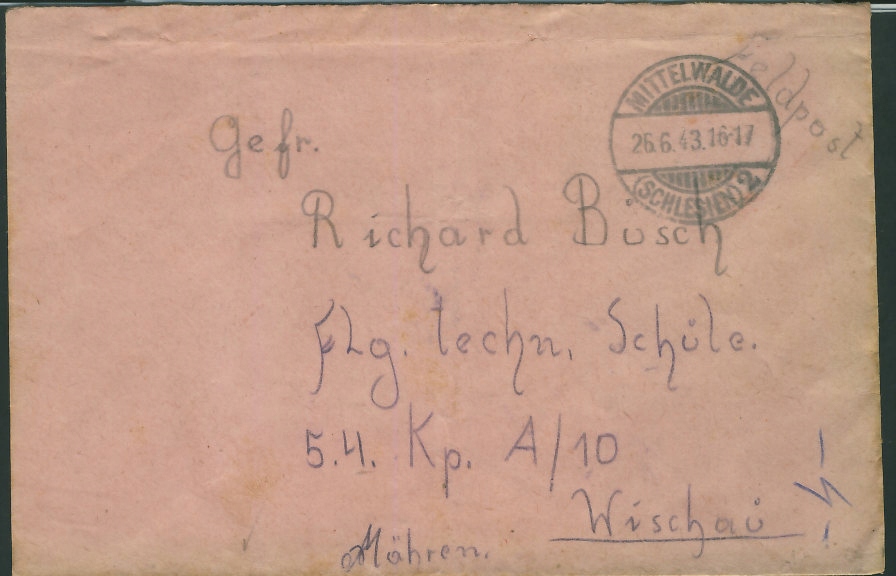 Feldpost
MITTELWALDE
26.6.43.16-17
(SCHLESIEN) 2
Gefr.
Richard Busch
Flg. techn. Schule.
5.4. Kp. A/10
Wischau
Mähren.